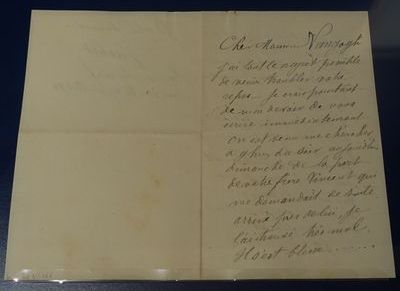 Cher Monsieur Vincogh
j'ai tout le regret possible
de venir troubler votre
repos. Je crois pourtant
de mon devoir de vous
écrire immédiatement
on est venu me chercher
à 9 hrs du soir aujourd'hui
dimanche de la part
de votre frère Vincent qui
me demandait de suite
arrivé près de lui, je
l'ai trouvé très mal.
Il s'est blessé .....